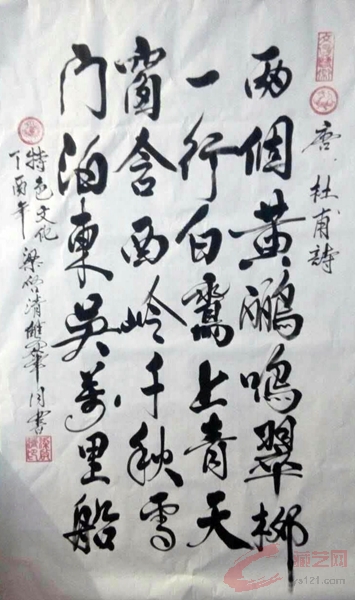 唐 杜甫詩
两個黄鹂鸣翠柳
一行白鷺上青天
窗含西岭千秋雪
门泊東吴萬里船
特色文化
丁酉年
藏艺网